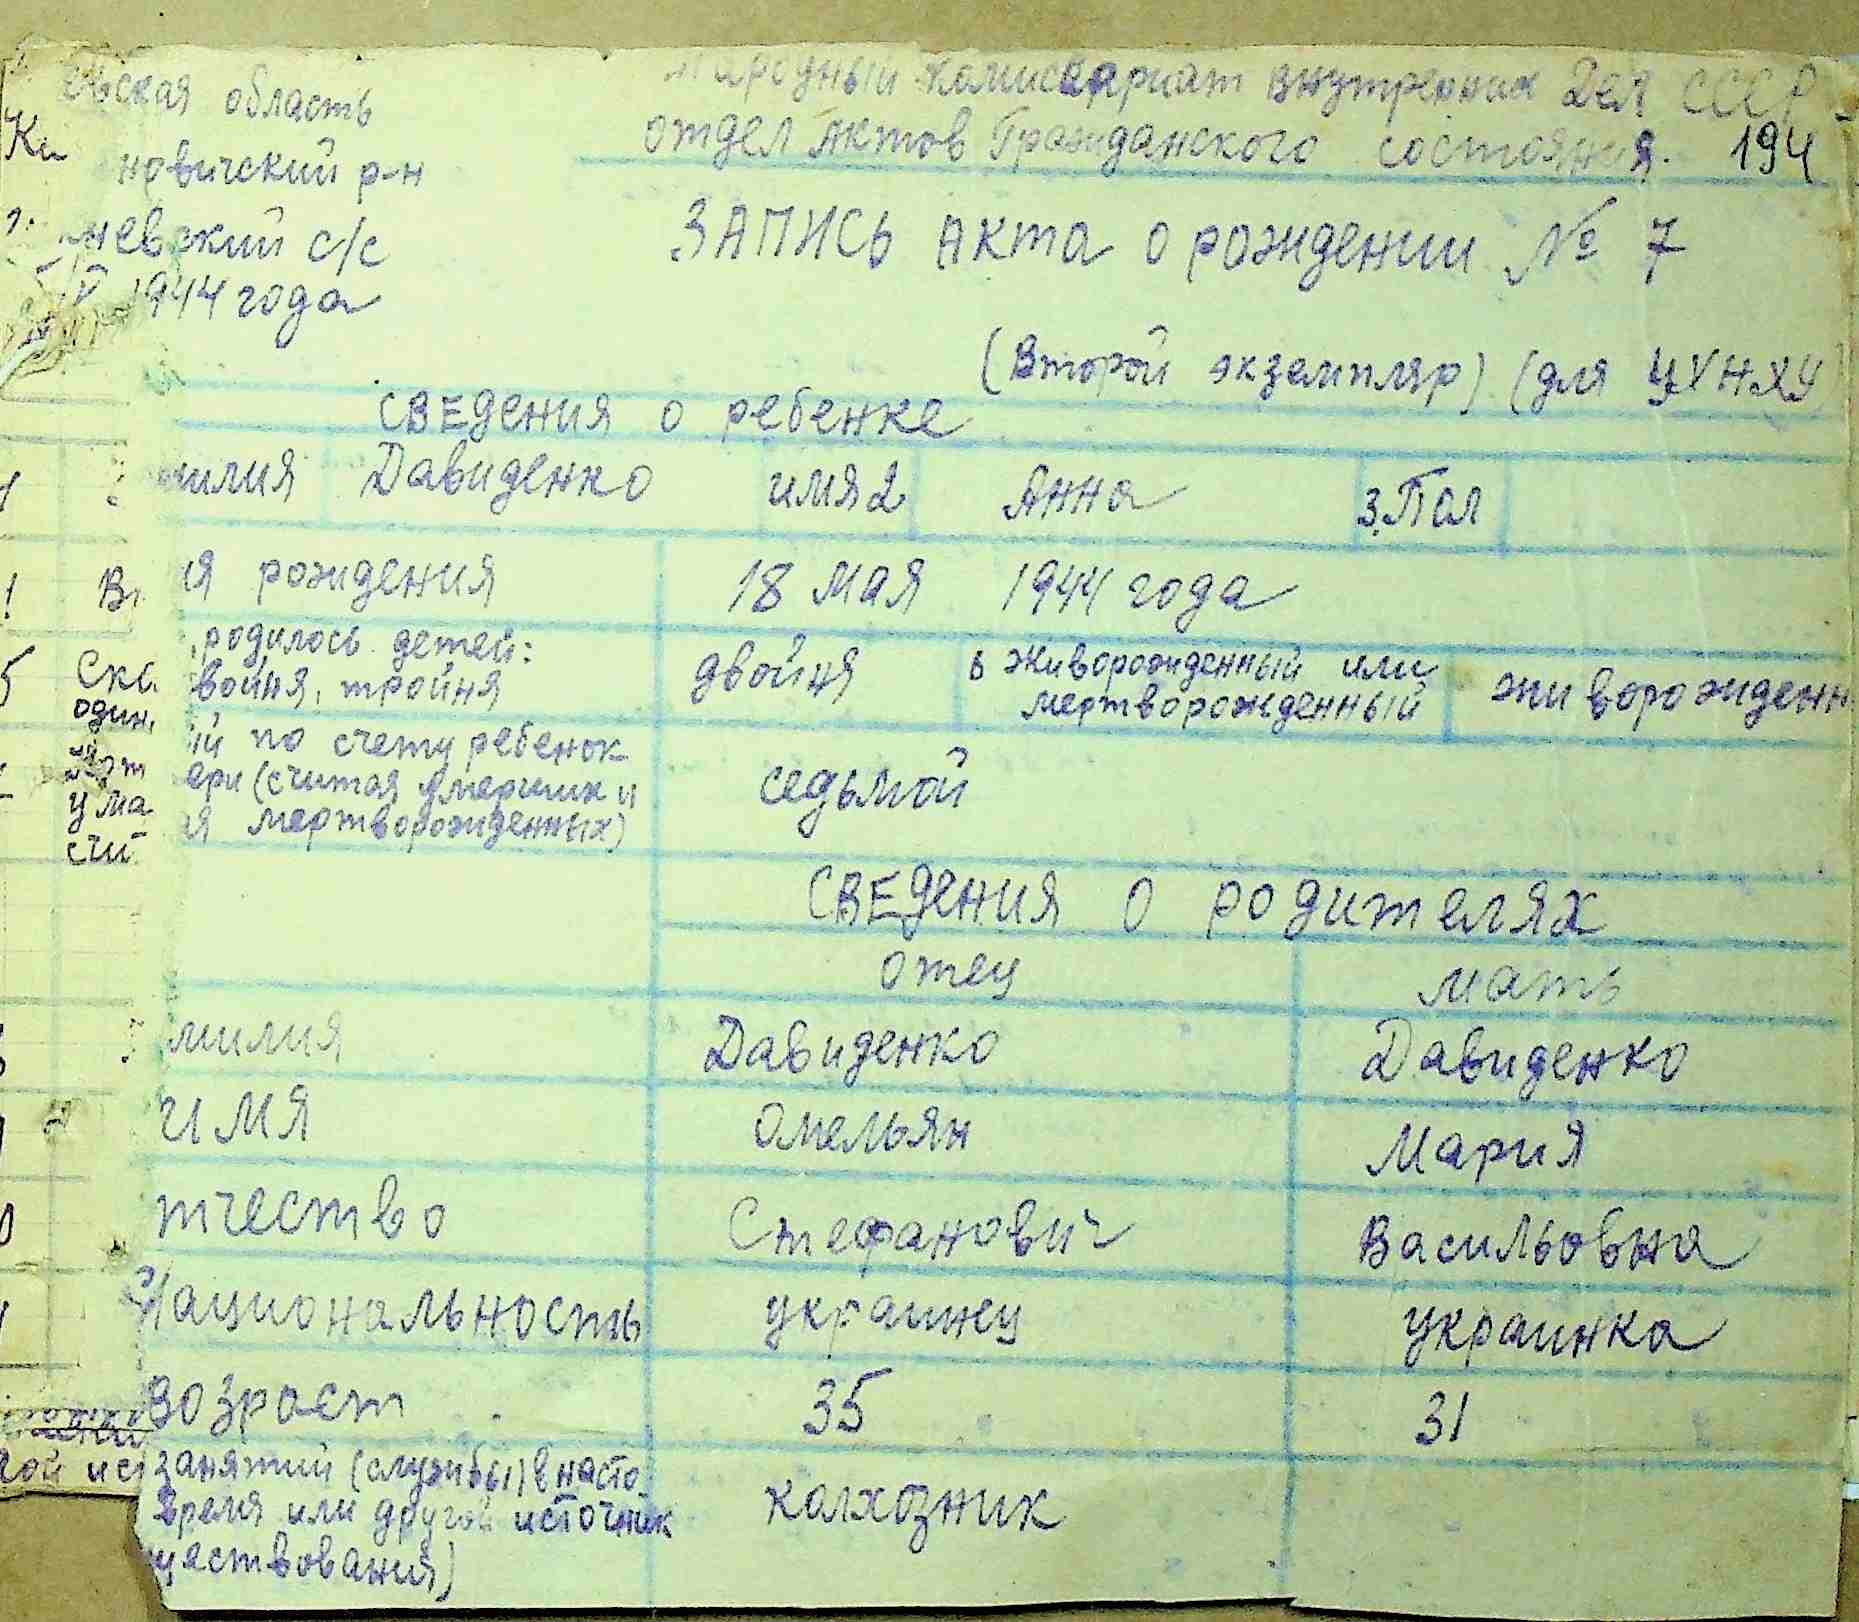 евская область
Народный Комиссариат Внутренних Дел СССР
отдел Актов Гражданского состояния. 194
новичский р-н
невский с/с
1944 года
ЗАПИСЬ Акта о рождении № 7
(Второй экземпляр) (для ЦУНХУ)
СВЕДЕНИЯ о ребенке
милия Давиденко имя 2 Анна 3. Пол
ия рождения 18 мая 1944 года
родилось детей:
войня, тройня двойня 6 живорожденный или
мертворожденный живорожденн
ий по счету ребенок
ери (считая умерших и
ая мертворожденных) седьмой
СВЕДЕНИЯ о родителях
отец мать
милия Давиденко Давиденко
имя Омельян Мария
тчество Стефанович Васильовна
Национальность украинец украинка
возраст 35 31
занятий (службы) в насто
время или другой источник колхозник
уществования)